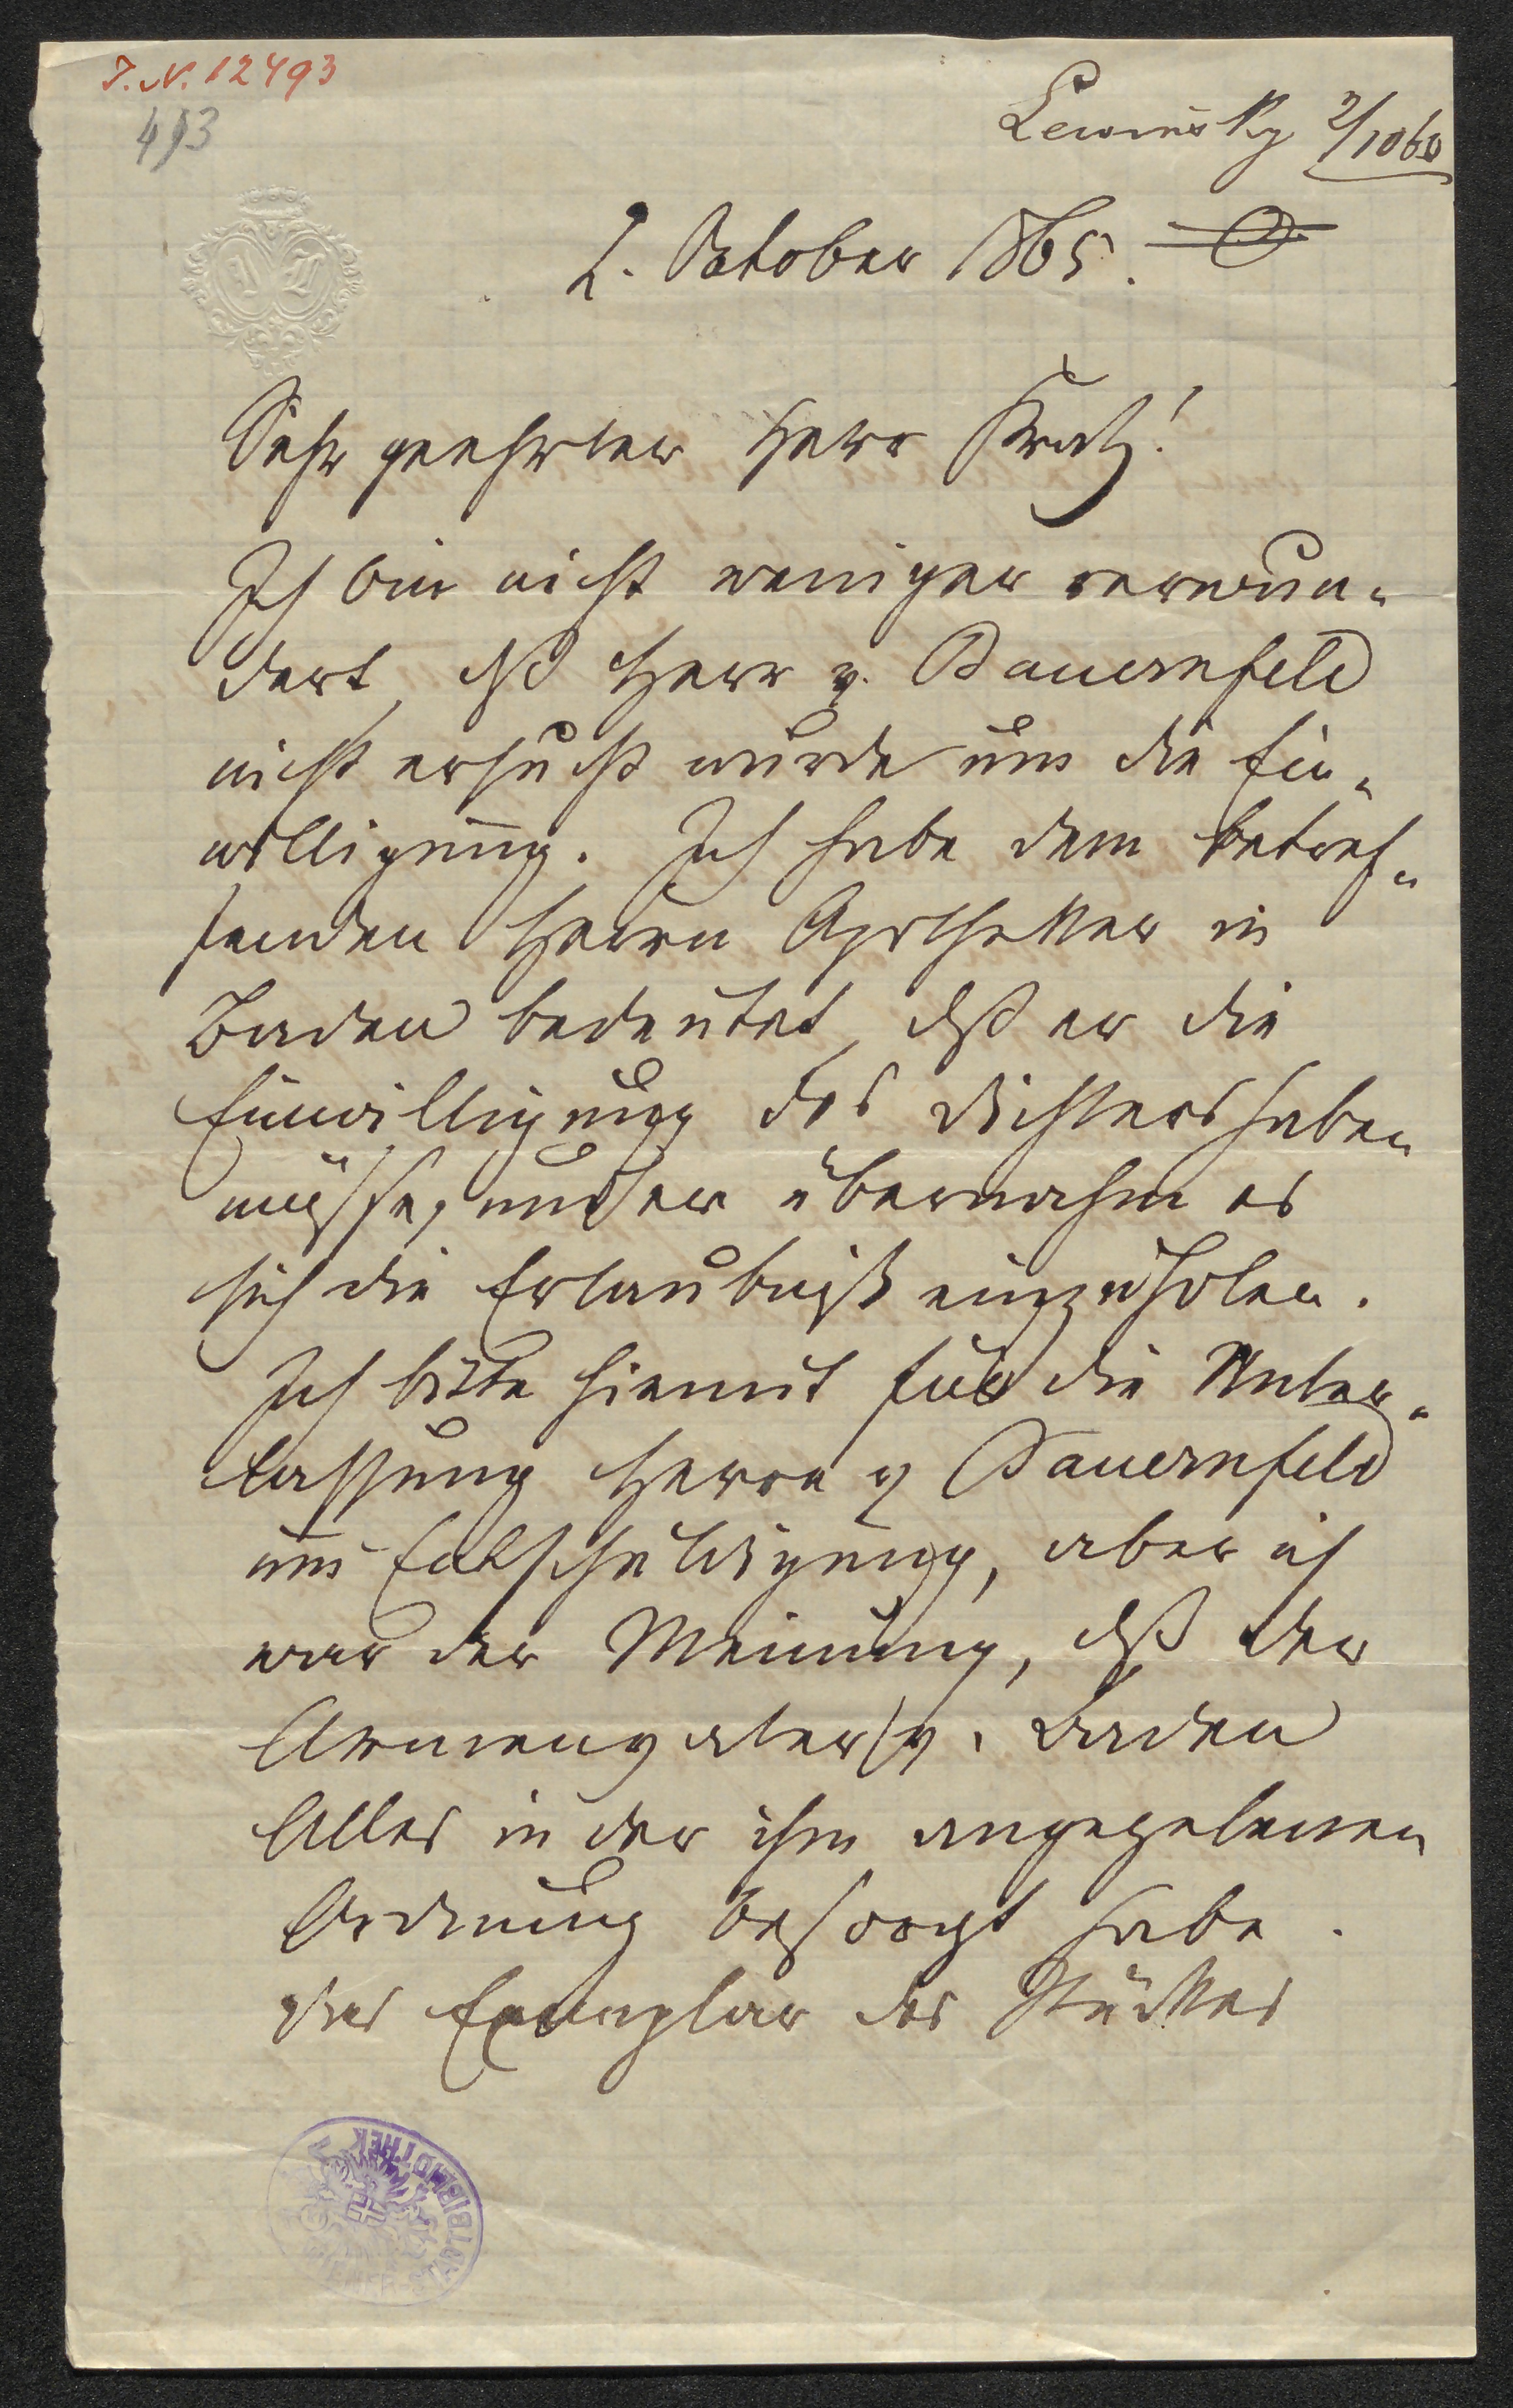 J.N. 12493
493
Lewinsky 2/10 65
2. October 1865.
Sehr geehrter Herr Kratz!
Ich bin nicht weniger verwun-
dert, dß Herr v. Bauernfeld
nicht ersucht wurde um die Ein-
willigung. Ich habe dem betref-
fenden Herrn Apotheker in
Baden bedeutet, dß er die
Einwilligung des Dichters haben
müsse, und er übernahm es
sich die Erlaubniß einzuholen.
Ich bitte hiemit für die Unter-
lassung Herrn v Bauernfeld
um Entschuldigung, aber ich
war der Meinung, dß der
Armenvater v. Baden
Alles in der ihm angegebenen
Ordnung besorgt habe.
Das Exemplar des Stückes